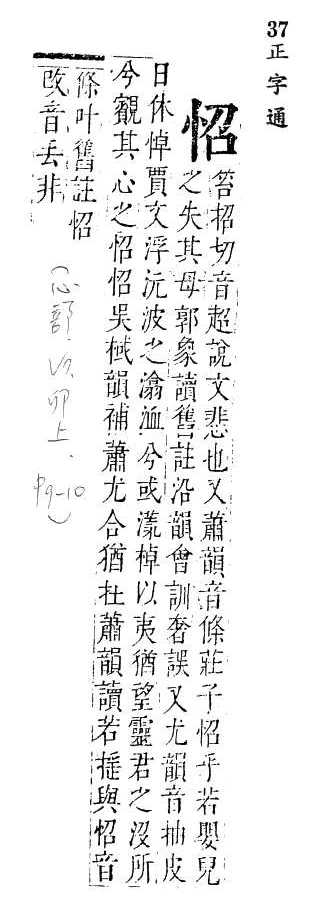 37正字通
怊
笞招切音超說文悲也又蕭韻音條莊子怊乎若嬰兒
之失其母郭象讀舊註沿韻會訓奢誤又尤韻音抽皮
日休悼賈文浮沅波之滃洫兮或漾棹以夷猶望靈君之沒所
兮覿其心之怊怊吳棫韻補蕭尤合猶杜蕭韻讀若搖與怊音
條叶舊註怊
改音丢非
(心部,次卯上,
p9-10)